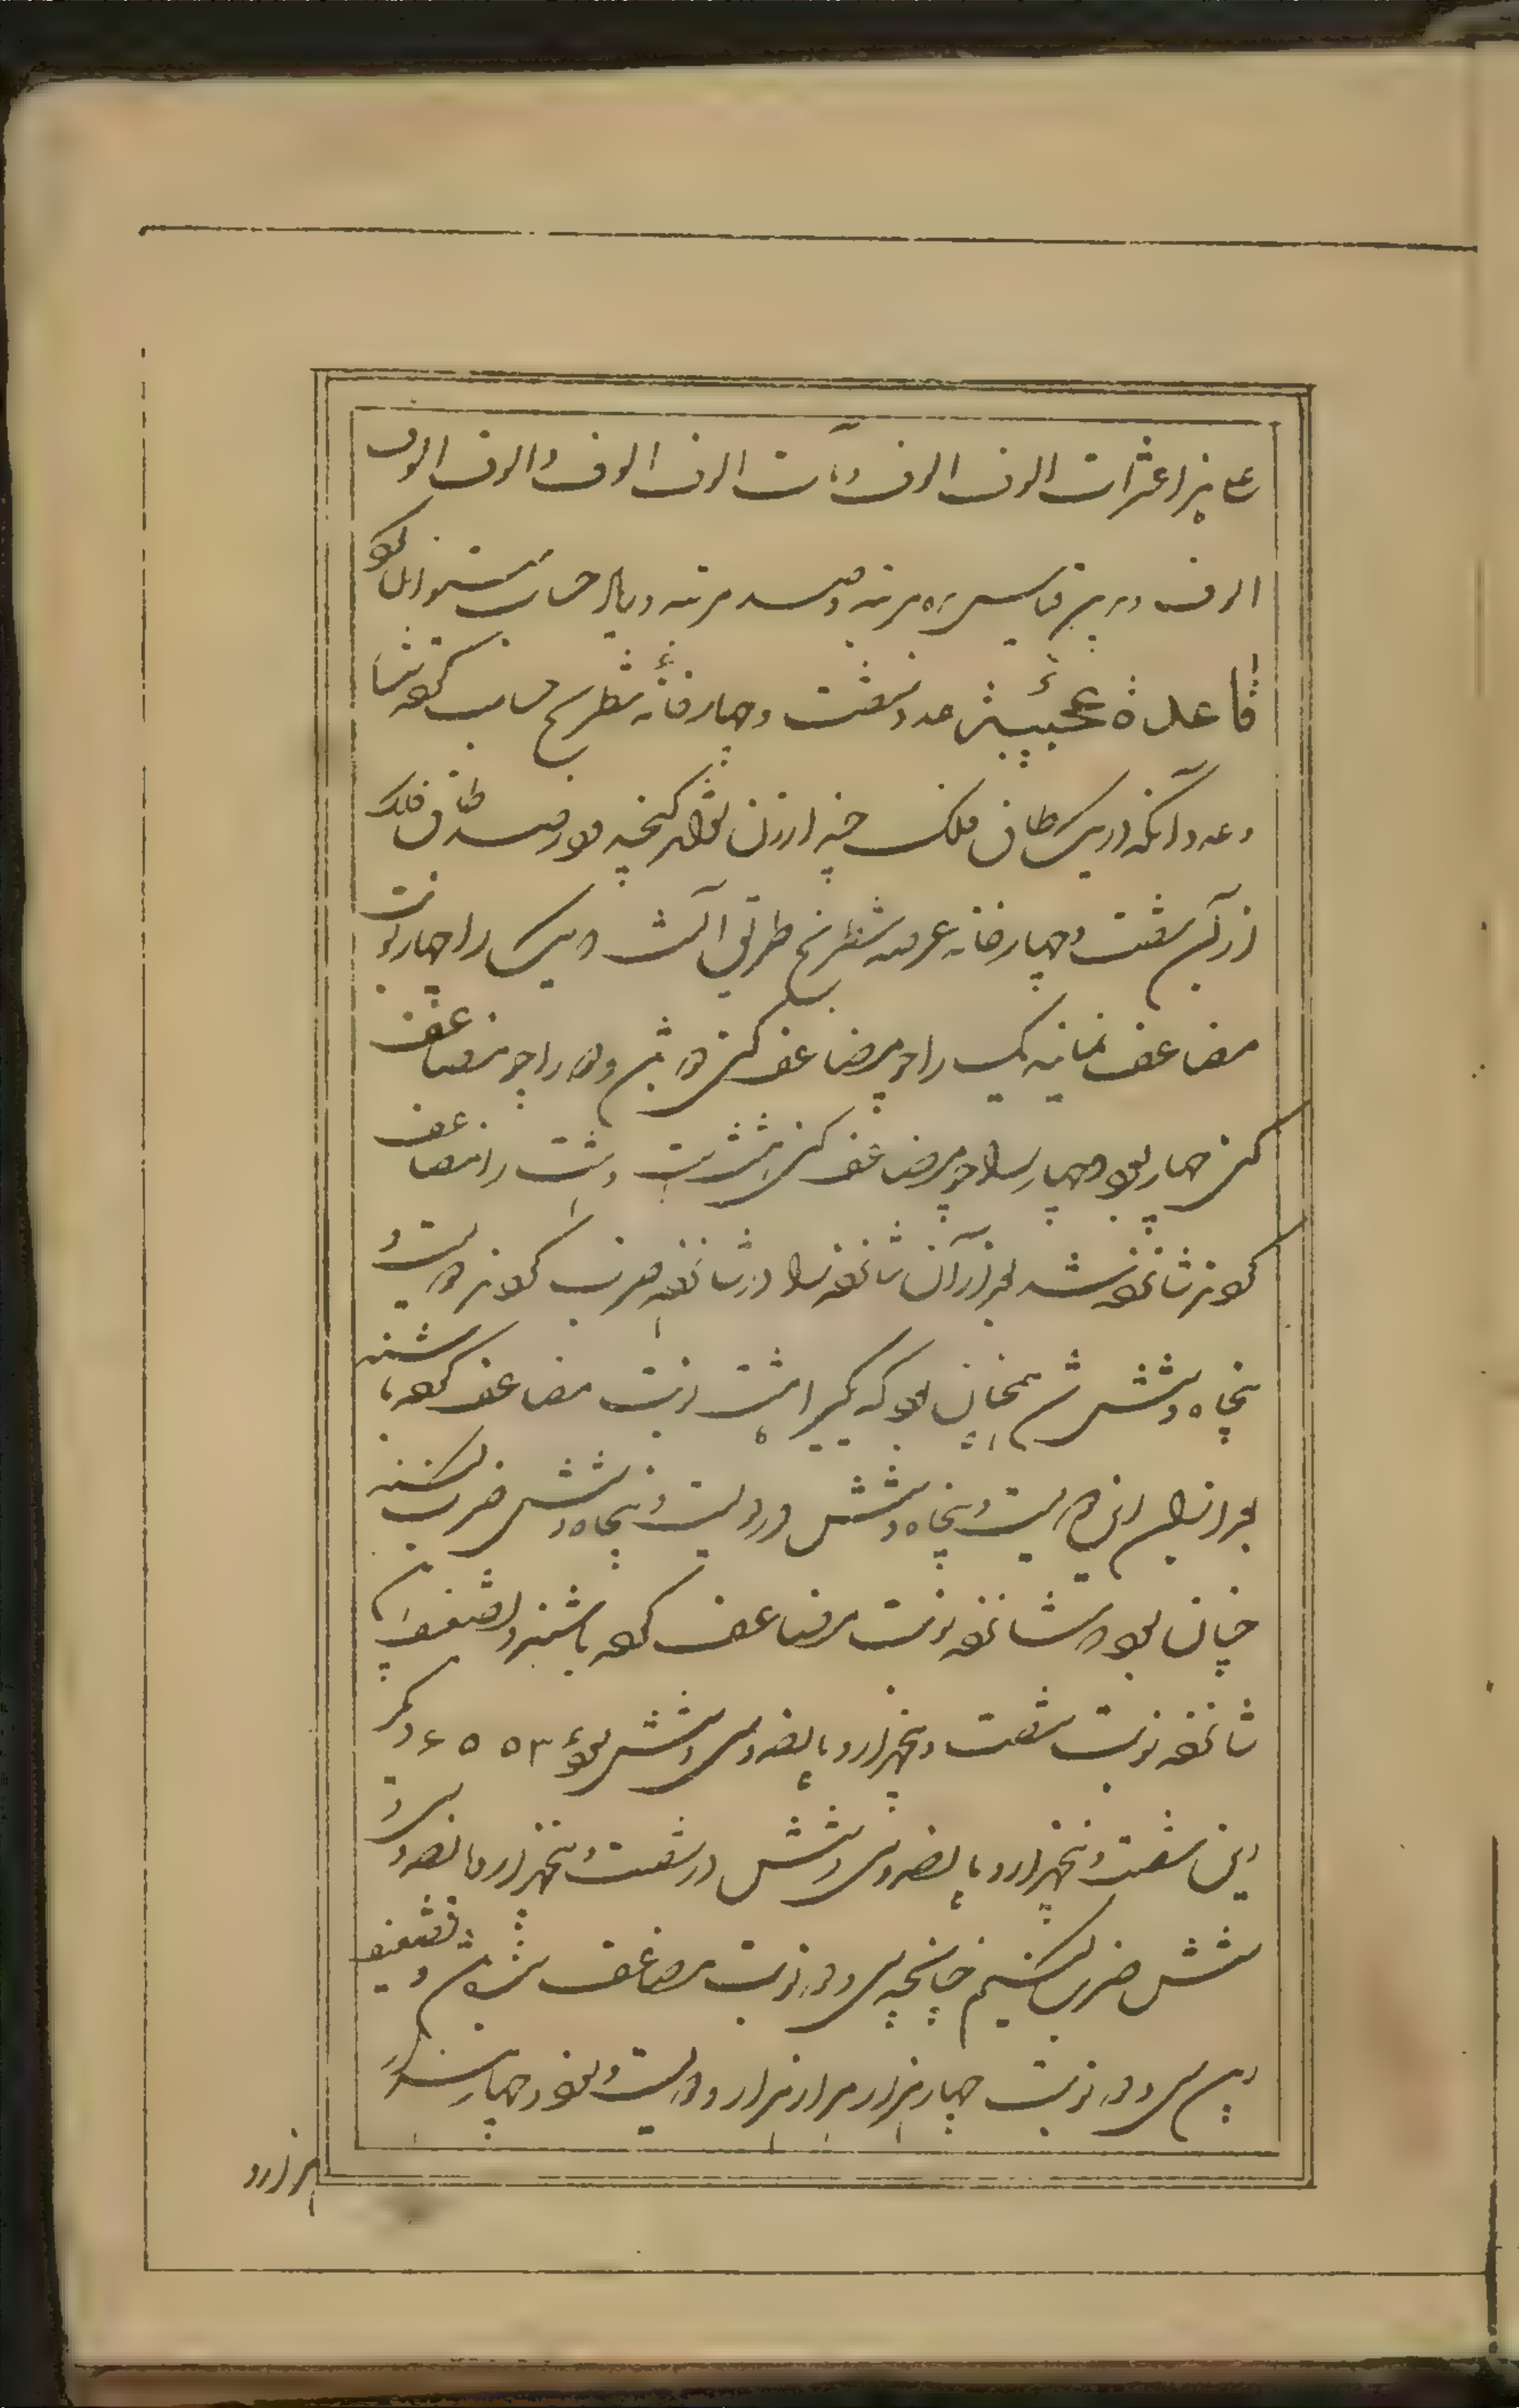 عشرات الوف الوف و مآت الوف الوف و الوف الوف
الوف و برین قیاس ده مرتبه و صد مرتبه و
قاعدهٔ عجیبه عدد شصت و چهار خانه شطرنج حساب
و عدد آنکه در یک طاق فلک چند ارزن گنجد و در صد طاق فلک
از آن شصت و چهار خانه عرصه شطرنج طریق آنست که یک را چهار نوبت
مضاعف یک را چون مضاعف کنی دو شود و دو را چون مضاعف
کنی چهار بود و چهار را چون مضاعف کنی هشت و هشت را مضاعف
کنی شانزده شد بعد از آن شانزده را در شانزده ضرب کنی دویست و
پنجاه و شش شود همچنان بود که یک را هشت نوبت مضاعف کرده باشند
بعد از این دویست و پنجاه و شش در دویست و پنجاه و شش ضرب کنند
چنان بود که شانزده نوبت مضاعف کرده باشند و تضعیف
شانزده نوبت شصت و پنجهزار و پانصد و سی و شش بود ۶۵۵۳ دیگر
این شصت و پنجهزار و پانصد و سی و شش در شصت و پنجهزار و پانصد و سی و
شش ضرب کنیم چنانچه سی و دو نوبت مضاعف شود و تضعیف
سی و دو نوبت چهار هزار هزار هزار و دویست و نود و چهار
هزار و